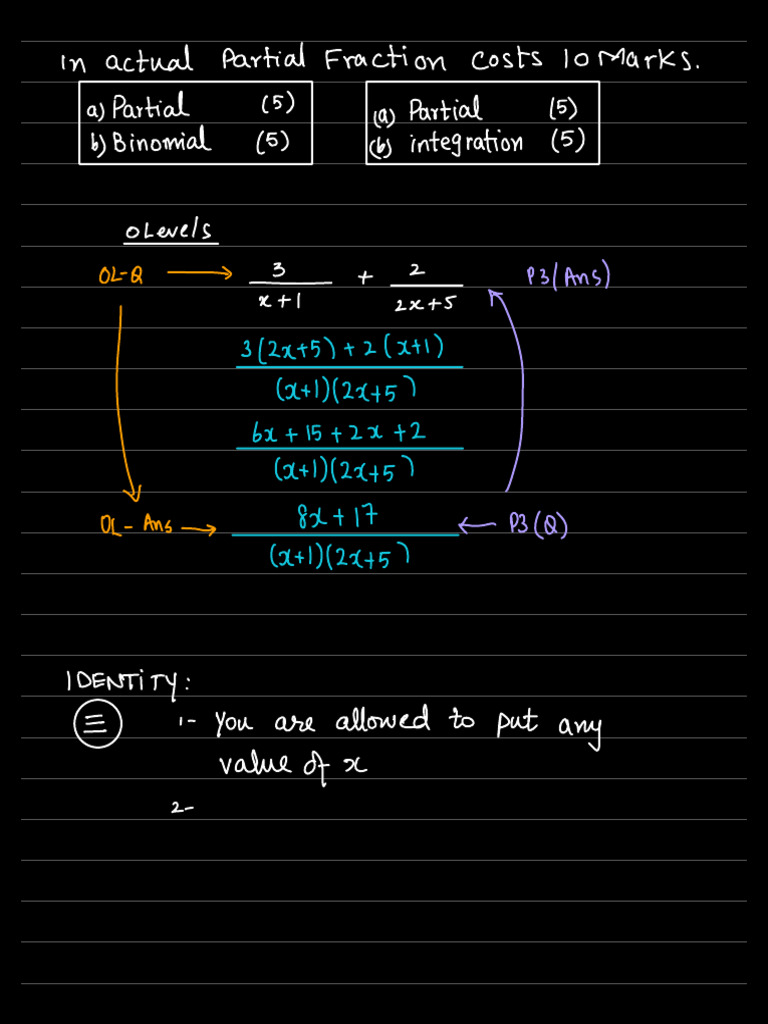 In actual Partial Fraction costs 10 Marks.
a) Partial (5)
b) Binomial (5)
(a) Partial (5)
(b) integration (5)
O Levels
OL-Q → 3/(x+1) + 2/(2x+5) P3(Ans)
3(2x+5) + 2(x+1)
(x+1)(2x+5)
6x + 15 + 2x + 2
(x+1)(2x+5)
OL - Ans → 8x + 17 ← P3(Q)
(x+1)(2x+5)
IDENTITY:
≡ 1- You are allowed to put any
value of x
2-